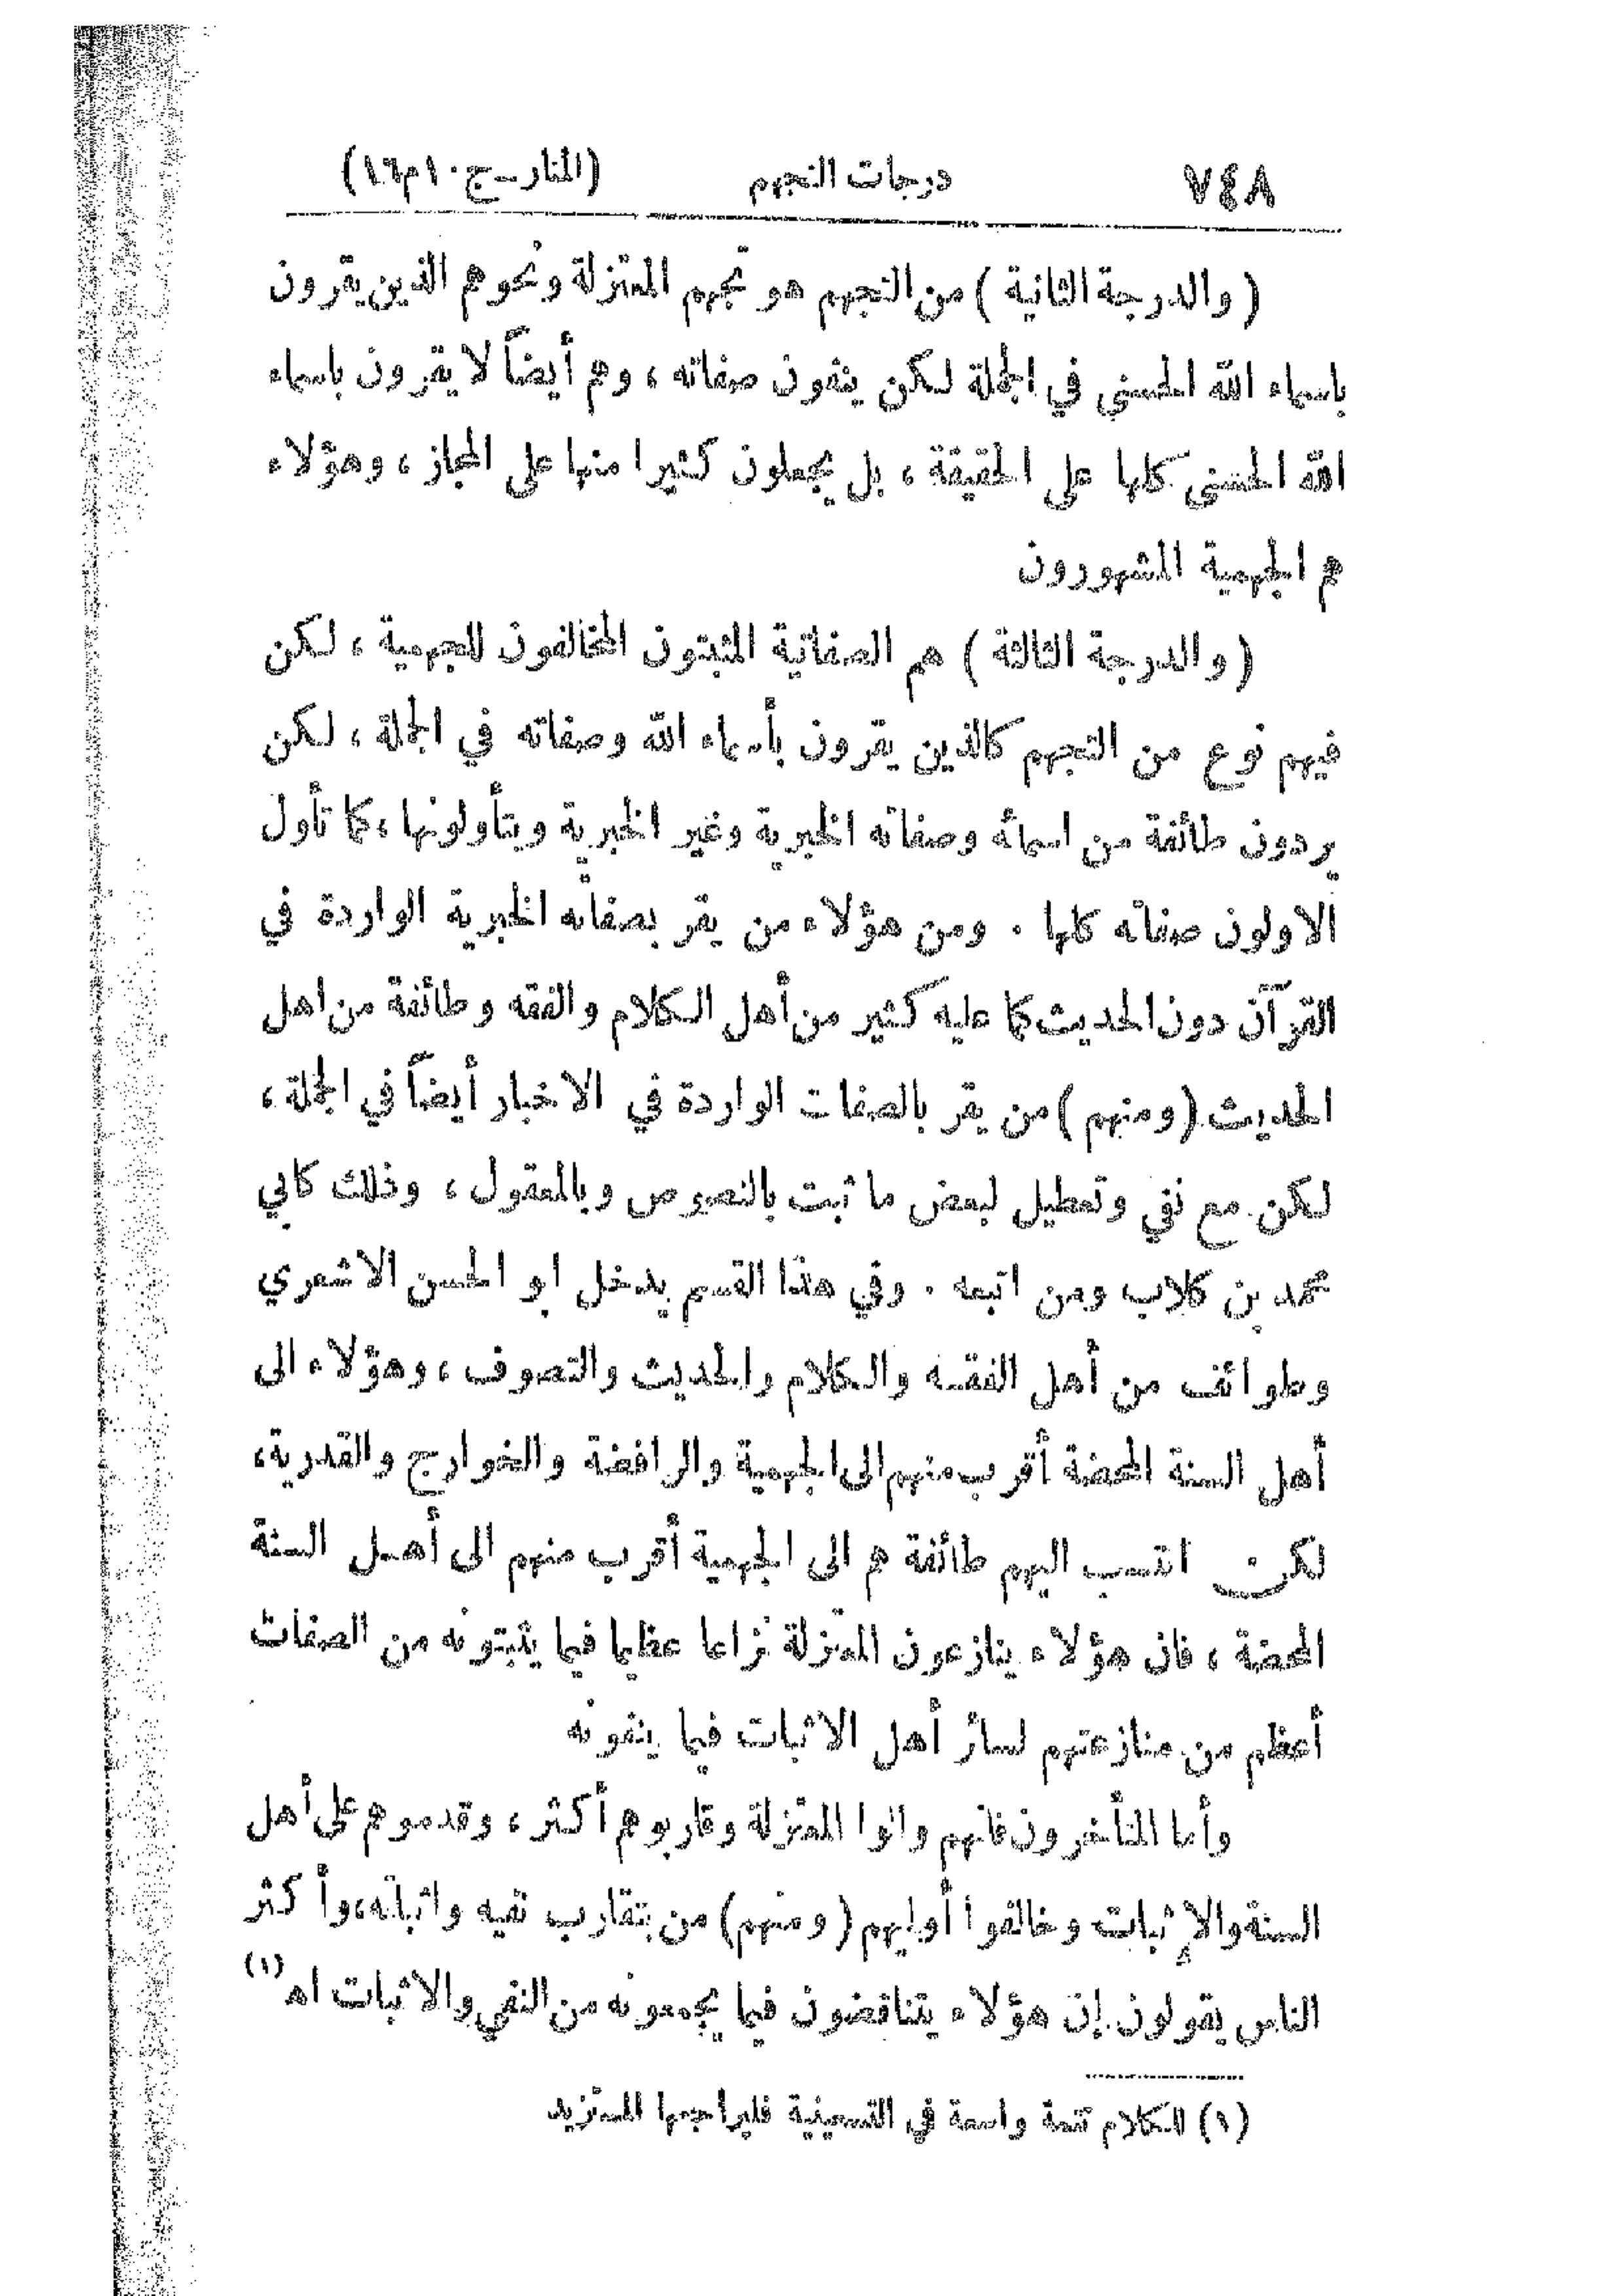 ٧٤٨ درجات التجهم (المنار ـ ج ١٠ م ١٦)
(والدرجة الثانية) من التجهم هو تجهم المعتزلة ونحوهم الذين يقرون
باسماء الله الحسنى في الجملة لكن ينفون صفاته ، وهم أيضاً لا يقرون باسماء
الله الحسنى كلها على الحقيقة ، بل يجعلون كثيرا منها على المجاز ، وهؤلاء
هم الجهمية المشهورون
(والدرجة الثالثة) هم الصفاتية المثبتون المخالفون للجهمية ، لكن
فيهم نوع من التجهم كالذين يقرون بأسماء الله وصفاته في الجملة ، لكن
يردون طائفة من اسمائه وصفاته الخبرية وغير الخبرية ويتأولونها ، كما تأول
الاولون صفاته كلها . ومن هؤلاء من يقر بصفاته الخبرية الواردة في
القرآن دون الحديث كما عليه كثير من أهل الكلام والفقه وطائفة من اهل
الحديث (ومنهم) من يقر بالصفات الواردة في الاخبار أيضاً في الجملة ،
لكن مع نفي وتعطيل لبعض ما ثبت بالنصوص وبالمعقول ، وذلك كابي
محمد بن كلاب ومن اتبعه . وفي هذا القسم يدخل ابو الحسن الاشعري
وطوائف من أهل الفقه والكلام والحديث والتصوف ، وهؤلاء الى
أهل السنة المحضة أقرب منهم الى الجهمية والرافضة والخوارج والقدرية ،
لكن انتسب اليهم طائفة هم الى الجهمية أقرب منهم الى أهل السنة
المحضة ، فان هؤلاء ينازعون المعتزلة نزاعا عظيما فيما يثبتونه من الصفات
أعظم من منازعتهم لسائر أهل الاثبات فيما ينفونه
وأما المتأخرون فانهم والوا المعتزلة وقاربوهم أكثر ، وقدموهم على أهل
السنة والإثبات وخالفوا أوليهم (ومنهم) من يتقارب نفيه واثباته ، وأكثر
الناس يقولون إن هؤلاء يتناقضون فيما يجمعونه من النفي والاثبات اه (١)
(١) للكلام تتمة واسعة في التسعينية فليراجعها المستزيد